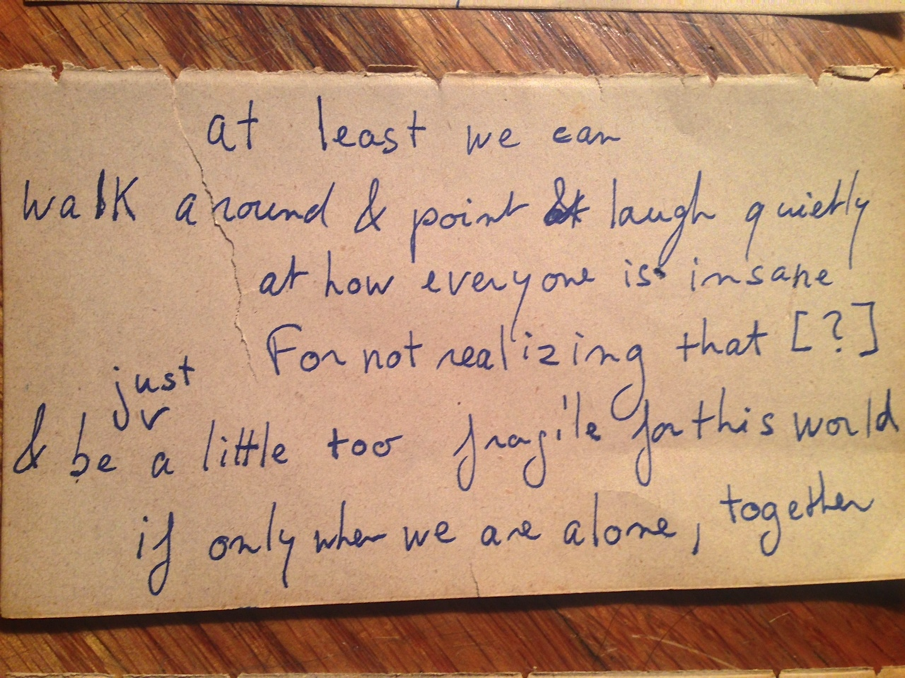 at least we can
walk around & point & laugh quietly
at how everyone is insane
For not realizing that [?]
& be just a little too fragile for this world
if only when we are alone, together